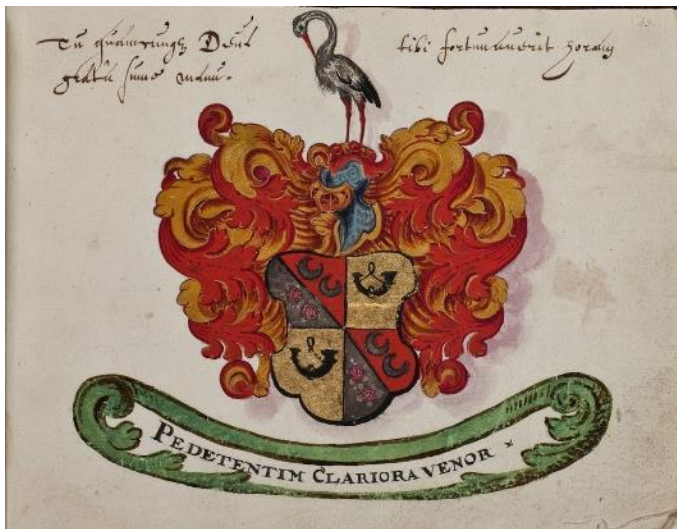 Tu quamcunque Deus tibi fortunaverit horam
grata sume manu.
PEDETENTIM CLARIORA VENOR